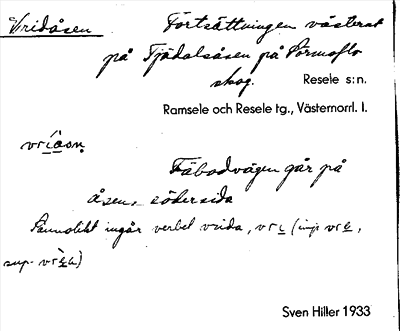 Vridåsen Fortsättningen västerut
på Tjädalsåsen på Pormoflo
skog. Resele s:n.
Ramsele och Resele tg., Västernorrl. l.
vri̇åsṇ
Fäbodvägen går på
åsens södersida
Sannolikt ingår verbet vrida, vrι (imp vre,
sup. vrèɩ)
Sven Hiller 1933